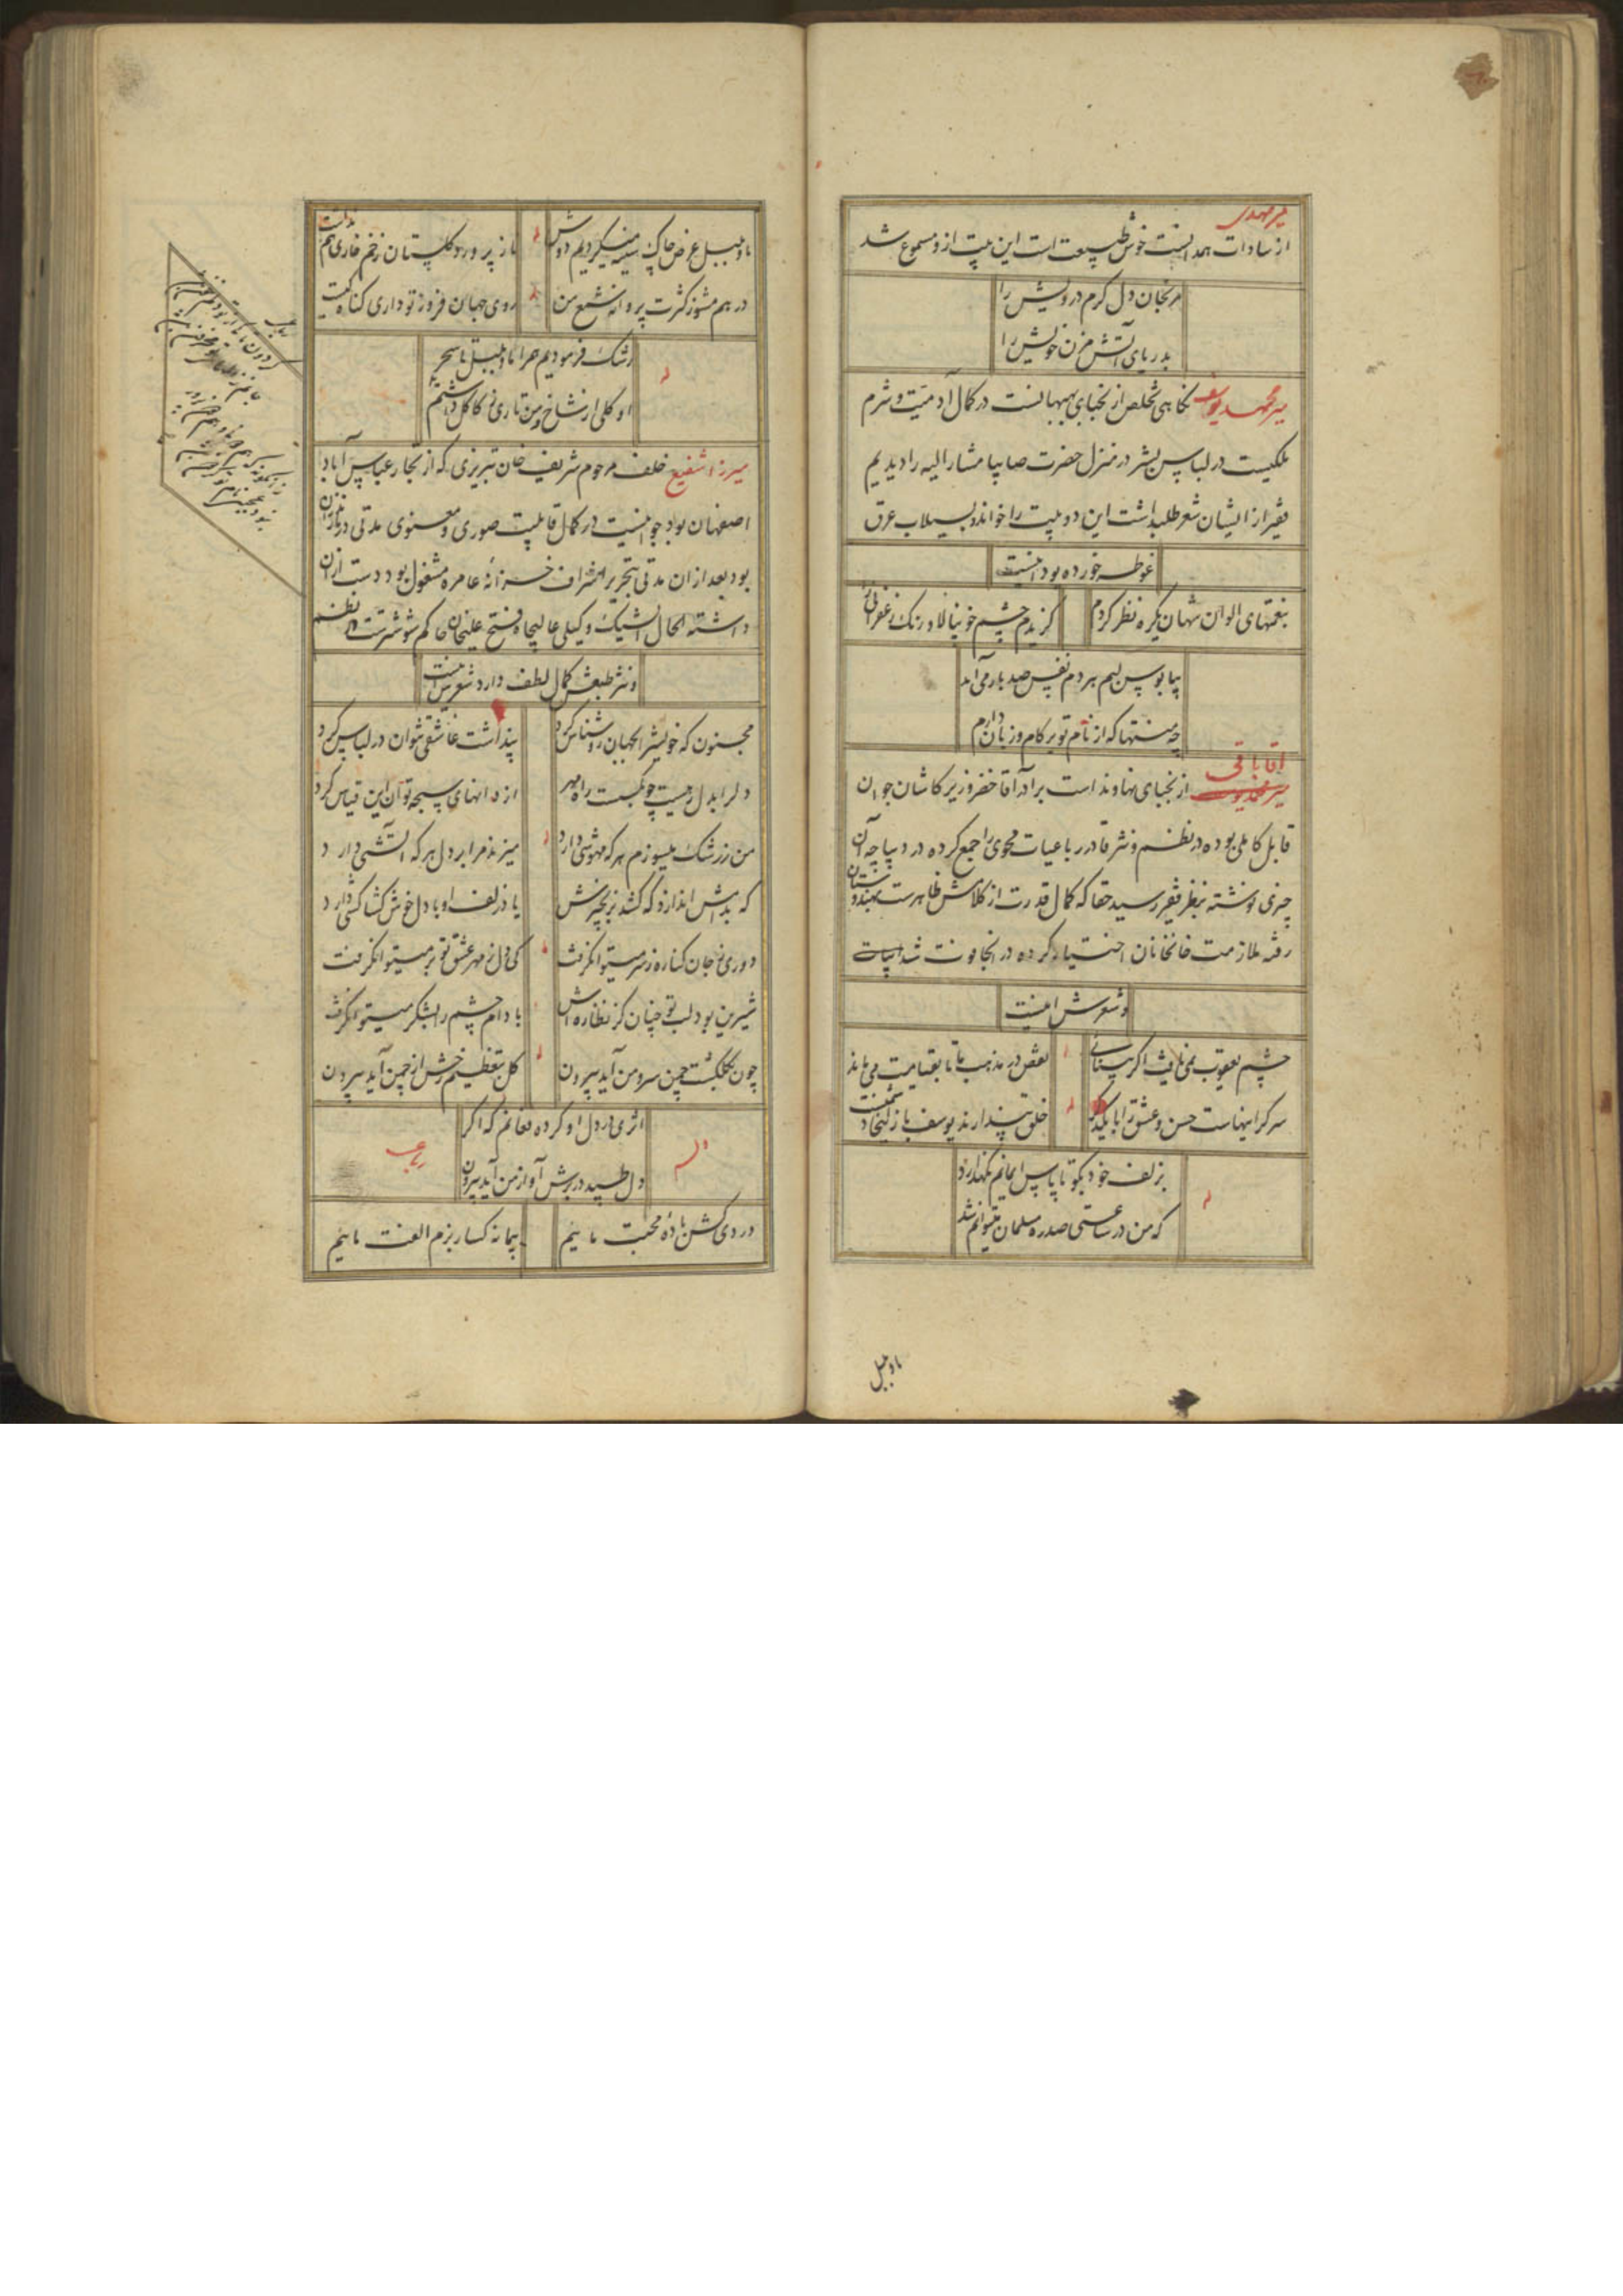 میر مهدی
از سادات همدانست خوش طبیعت است این بیت ازو مسموع شد
مرنجان دل گرم درویش را
بدریای آتش مزن خویش را
میر محمد یوسف نکاهی تخلص از نجبای بهبهانست در کمال آدمیت و شرم
ملکیست در لباس بشر در منزل حضرت صایبا مشار الیه را دیدیم
فقیر از ایشان شعر طلب داشت این دو بیت را خواند و بسیلاب عرق
غوطه خورده بود اینست
بنعمتهای الوان شهان یکره نظر کردم
گزیدم چشم خونپالا و رنک زعفرانی را
بپابوس لبم هر دم نفس صد بار می آید
چه منتها که از نام تو بر کام و زبان دارم
اقا باقی
از نجبای نهاوند است برادر آقا خضر وزیر کاشان جوان
قابل کاملی بوده در نظم و نثر قادر رباعیات محوی را جمع کرده در دیباچه آن
چیزی نوشته بنظر فقیر رسید حقا که کمال قدرت از کلامش ظاهرست بهندوستان
رفته ملازمت خانخانان اختیار کرده در انجا فوت شد ابیات
و شعرش اینست
چشم یعقوب نمی یافت اگر بینائی
نقص در مذهب ما تا بقیامت می ماند
سر گرانیهاست حسن و عشق را با یکدکر
خلق پندارند یوسف با زلیخا دشمنست
بزلف خود بگو تا پاس ایمانم نگهدارد
که من در ساعتی صد ره مسلمان میتوانم شد
با و بلبل
با و بلبل عرض چاک سینه میکردیم دوش
ناز پرورد گلستان زخم خاری هم نداشت
در هم مشو ز کثرت پروانه شمع من
روی جهان فروز تو داری کناه کیست
رشک فرمودیم مرا با و بلبل تا سحر
او کلی از شاخ و من تاری ز کاکل داشتم
میرزا شفیع خلف مرحوم شریف خان تبریزی که از تجار عباس آباد
اصفهان بود جوانیست در کمال قابلیت صوری و معنوی مدتی در مازندران
بود بعد ازان مدتی بتحریر اشراف خزانه عامره مشغول بود دست ازان
داشته الحال وکیل عالیجاه فتح علیخان حاکم شوشترست در نظم
و نثر طبعش کمال لطف دارد شعرش اینست
مجنون که خویش را بجهان روشناس کرد
پنداشت عاشقی بتوان در لباس کرد
دلرا بدل رهیست چو نکبست راه مهر
از دانهای سبحه توان این قیاس کرد
من ز رشک میسوزم هر که مهوشی دارد
میزند مرا بر دل هر که آتشی دارد
که بدامش اندازد که کشد بزنجیرش
یاد زلف او با دل خوش کشاکشی دارد
دوری ز جان کناره ز سر میتوان گرفت
کی دل ز مهر عشق تو بر میتوان گرفت
شیرین بود لب تو چنان کز نظاره اش
بادام چشم را بشکر میتوان گرفت
چون بگلگشت چمن سرو من آید بیرون
کل بتعظیم رخش از چمن آید بیرون
وله
اثری در دل او کرده فغانم که اگر
دل طپید در برش آواز من آید بیرون
رباعی
دردی کش باده محبت مائیم
پیمانه کسار بزم الفت مائیم
رباعی